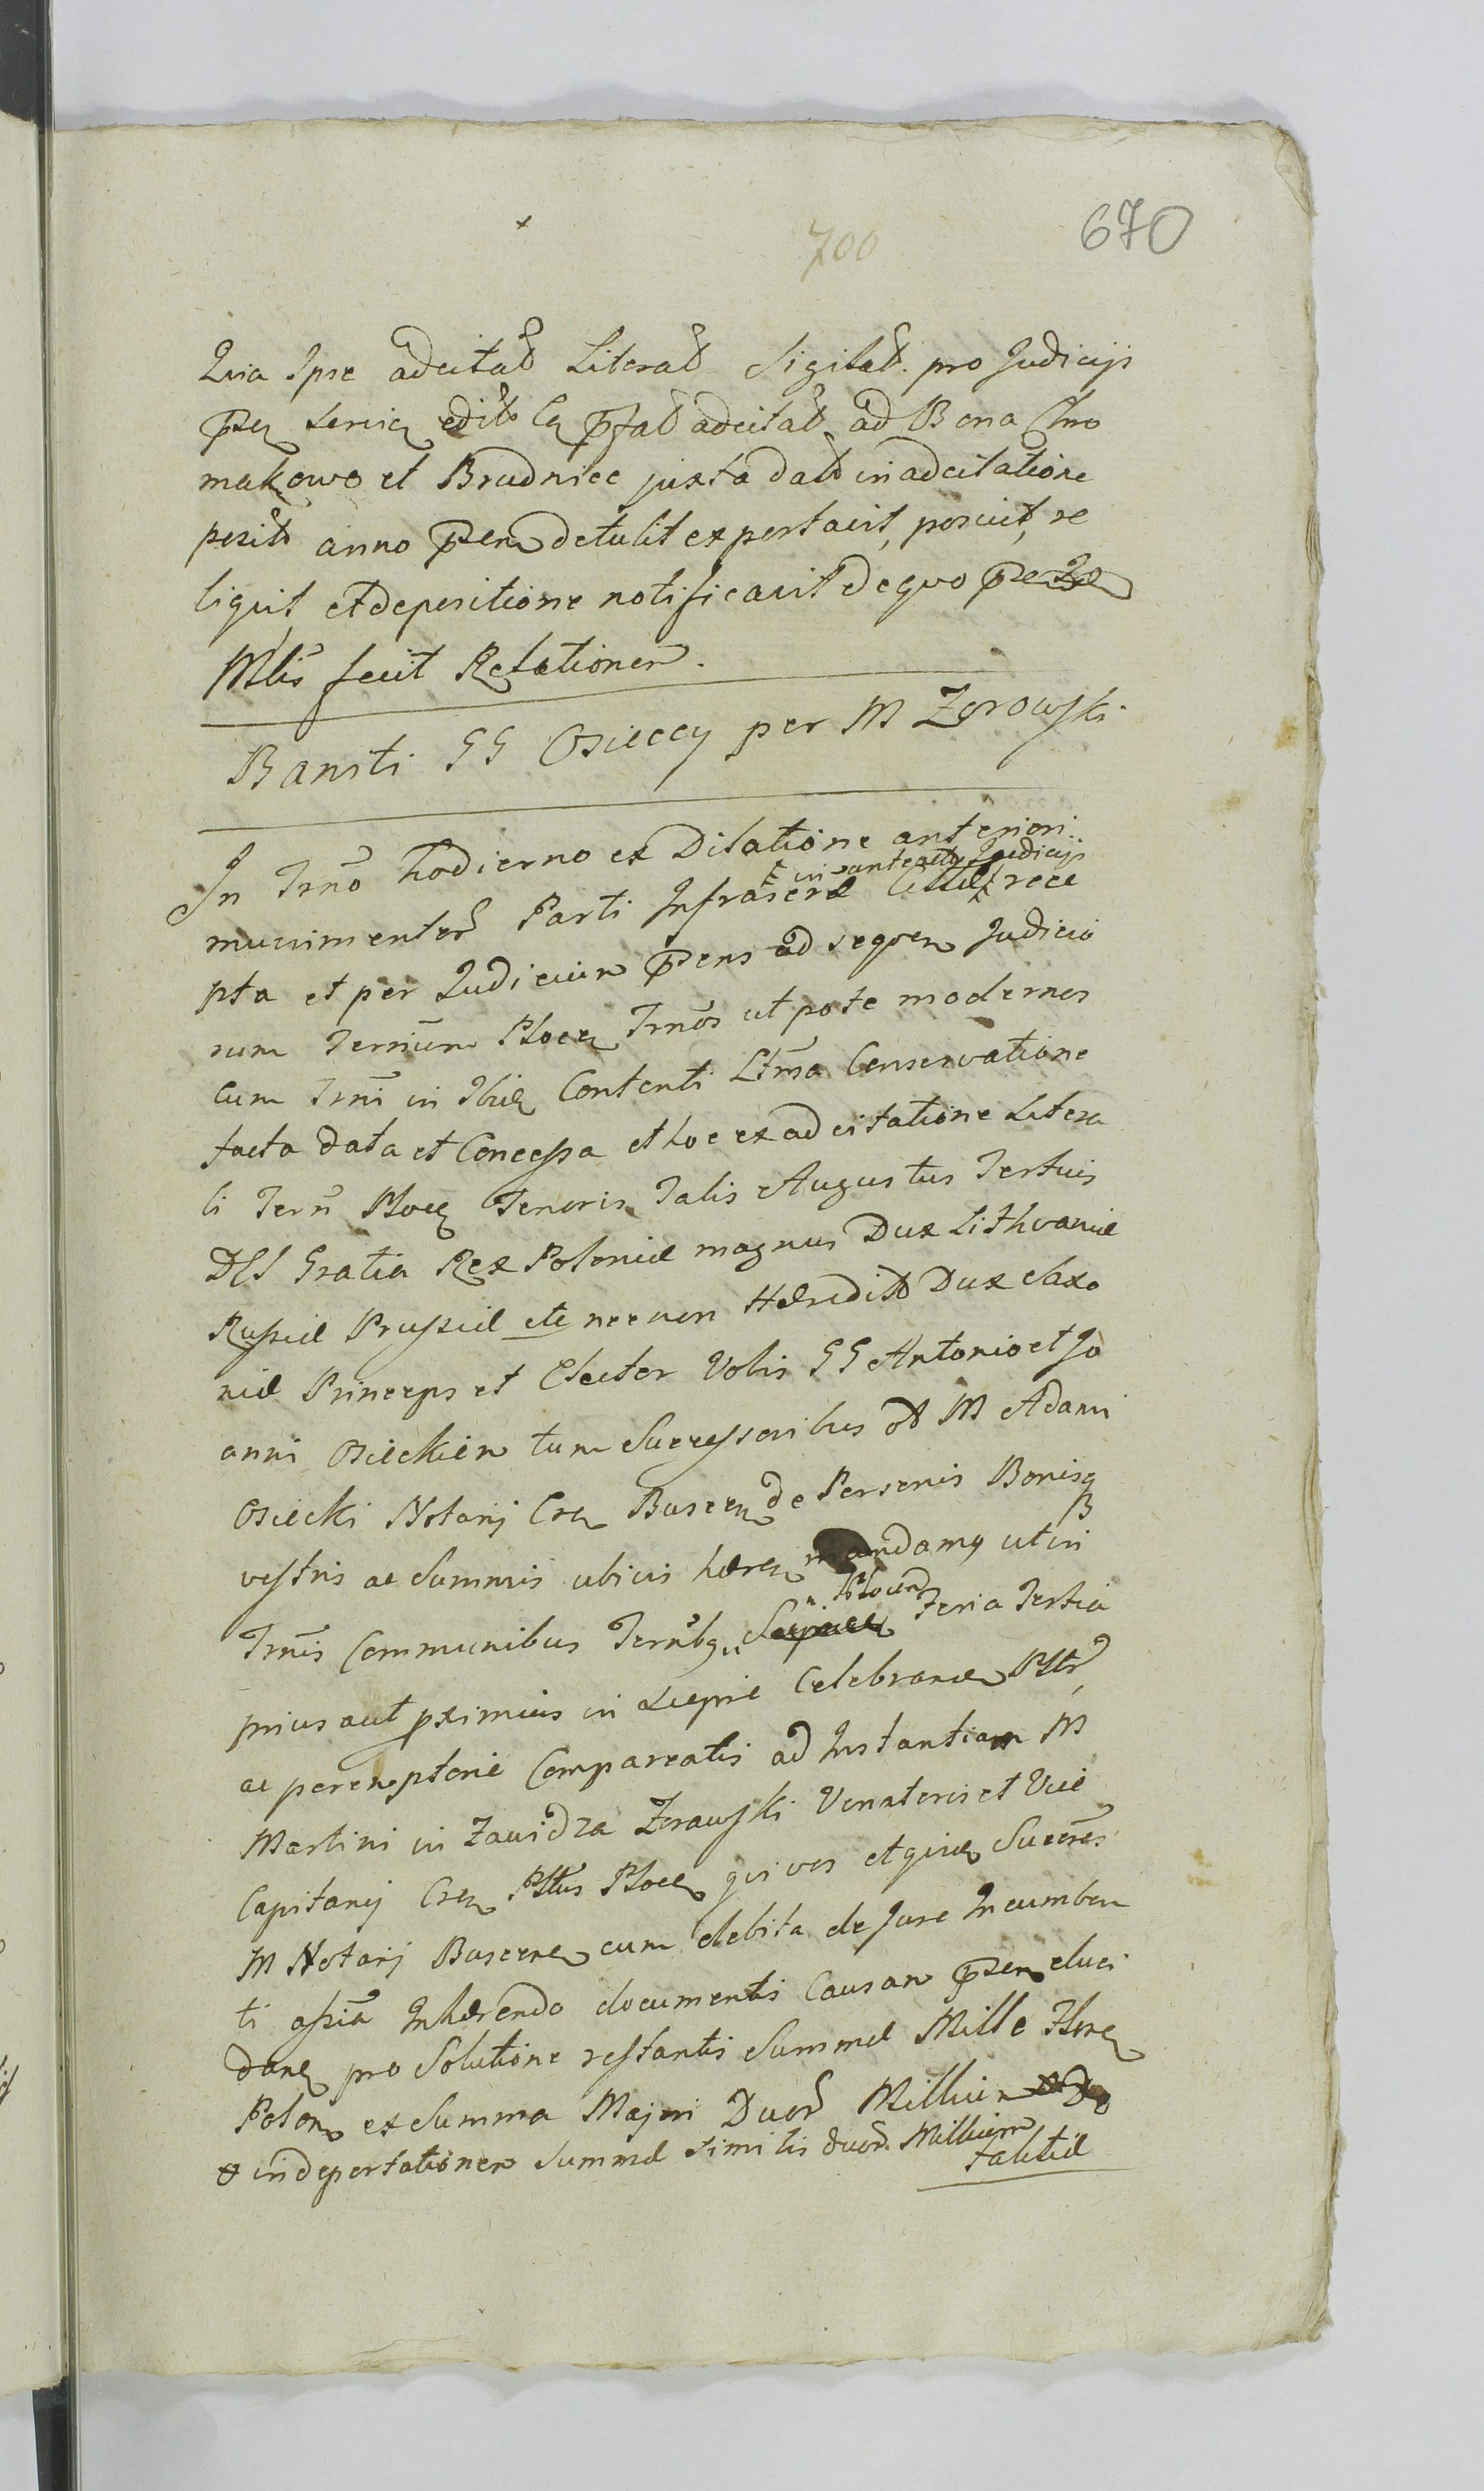 670
700
Quia Ipse adcitaõ Literaõ Sigilaõ. pro Judicijs
adcitaõ ad Bona Chro
makowo et Brudnice juxta daõ in adcitatione
posit anno pñ detulit exportavit, posuit, re
liquit, et depositione notificavit de quo
Mlis fecit Relationem.
Baniti GG Osieccy per M Zorowski
In Trno hodierno ex Dilatione anteriori
in anteactis Judicijs
munimentor Parti Infrascrae rece
pta et per Judicium pñs ad sequen Judicio
rum Terrium Plocen Trnos ut pote modernos
cum Trni in Contenti Ltma Conservatione
facta data et Concessa et hoc ex adcitatione Litera
li Terr Plocen Tenoris Talis Augustus Tertius
DEI Gratia Rex Poloniæ magnus Dux Lithvaniæ
Russiæ Prussiæ etc necnon Hæredit Dux Saxo
niæ Princeps et Elector Vobis GG Antonio et Jo
anni Osieckien tum Successoribus M Adami
Osiecki Notarij Buscen de Personis Bonisq
vestris ac Summis ubivis mandamq ut in
Plocen
Trnis Communibus Terrbq Feria Tertia
prius aut pximius in Licpno Celebrand Pltr
ac peremptorie Compareatis ad Instantiam M
Martini in Zawidza Zorawski Venatoris et Vice
Capitanij Pltus Plocen qui vos Succres
M Notarij Buscen cum debita de Jure Incumben
ti Inhærendo documentis Causam pñ eluci
dan pro Solutione restantis Summæ Mille Flor
Polon ex Summa Majori Duor Millium
indeportationem Summæ similis duor Millium
talitiæ